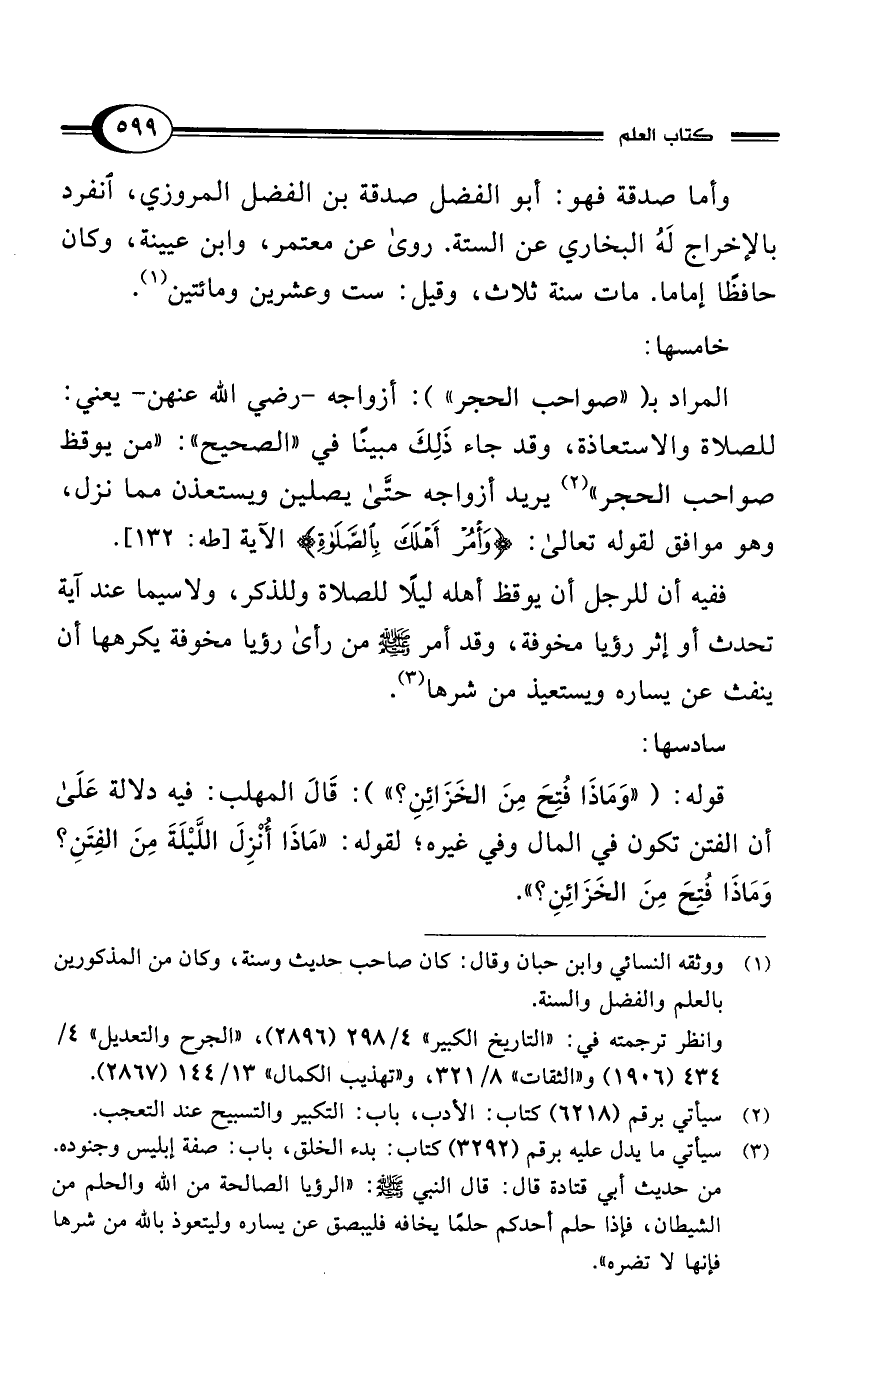 كتاب العلم
٥٩٩
وأما صدقة فهو: أبو الفضل صدقة بن الفضل المروزي، ٱنفرد
بالإخراج لَهُ البخاري عن الستة. روىٰ عن معتمر، وابن عيينة، وكان
حافظًا إماما. مات سنة ثلاث، وقيل: ست وعشرين ومائتين(١).
خامسها:
المراد بـ( «صواحب الحجر» ): أزواجه -رضي الله عنهن- يعني:
للصلاة والاستعاذة، وقد جاء ذَلِكَ مبينًا في «الصحيح»: «من يوقظ
صواحب الحجر»(٢) يريد أزواجه حتَّىٰ يصلين ويستعذن مما نزل،
وهو موافق لقوله تعالىٰ: ﴿وَأْمُرْ أَهْلَكَ بِٱلصَّلَوٰةِ﴾ الآية [طه: ١٣٢].
ففيه أن للرجل أن يوقظ أهله ليلًا للصلاة وللذكر، ولاسيما عند آية
تحدث أو إثر رؤيا مخوفة، وقد أمر ﷺ من رأىٰ رؤيا مخوفة يكرهها أن
ينفث عن يساره ويستعيذ من شرها(٣).
سادسها:
قوله: ( «وَمَاذَا فُتِحَ مِنَ الخَزَائِنِ؟» ): قَالَ المهلب: فيه دلالة عَلَىٰ
أن الفتن تكون في المال وفي غيره؛ لقوله: «مَاذَا أُنْزِلَ اللَّيْلَةَ مِنَ الفِتَنِ؟
وَمَاذَا فُتِحَ مِنَ الخَزَائِنِ؟».
(١) ووثقه النسائي وابن حبان وقال: كان صاحب حديث وسنة، وكان من المذكورين
بالعلم والفضل والسنة.
وانظر ترجمته في: «التاريخ الكبير» ٤/ ٢٩٨ (٢٨٩٦)، «الجرح والتعديل» ٤/
٤٣٤ (١٩٠٦) و«الثقات» ٨/ ٣٢١، و«تهذيب الكمال» ١٣/ ١٤٤ (٢٨٦٧).
(٢) سيأتي برقم (٦٢١٨) كتاب: الأدب، باب: التكبير والتسبيح عند التعجب.
(٣) سيأتي ما يدل عليه برقم (٣٢٩٢) كتاب: بدء الخلق، باب: صفة إبليس وجنوده.
من حديث أبي قتادة قال: قال النبي ﷺ: «الرؤيا الصالحة من الله والحلم من
الشيطان، فإذا حلم أحدكم حلمًا يخافه فليبصق عن يساره وليتعوذ بالله من شرها
فإنها لا تضره».